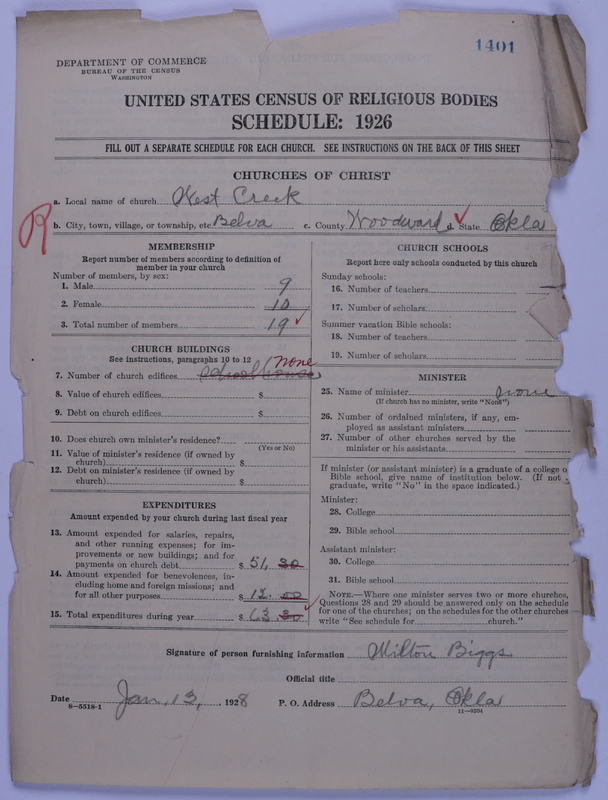 1401
DEPARTMENT OF COMMERCE
BUREAU OF THE CENSUS
WASHINGTON
UNITED STATES CENSUS OF RELIGIOUS BODIES
SCHEDULE: 1926
FILL OUT A SEPARATE SCHEDULE FOR EACH CHURCH. SEE INSTRUCTIONS ON THE BACK OF THIS SHEET
CHURCHES OF CHRIST
a. Local name of church West Creek
R
b. City, town, village, or township, etc. Belva c. County Woodward d. State Okla
MEMBERSHIP
Report number of members according to definition of
member in your church
Number of members, by sex:
1. Male 9
2. Female 10
3. Total number of members 19
CHURCH BUILDINGS
See instructions, paragraphs 10 to 12
none
7. Number of church edifices school house
8. Value of church edifices $
9. Debt on church edifices $
10. Does church own minister's residence?
(Yes or No)
11. Value of minister's residence (if owned by
church) $
12. Debt on minister's residence (if owned by
church) $
EXPENDITURES
Amount expended by your church during last fiscal year
13. Amount expended for salaries, repairs,
and other running expenses; for im-
provements or new buildings; and for
payments on church debt $ 51, 30
14. Amount expended for benevolences, in-
cluding home and foreign missions; and
for all other purposes $ 12. 00
15. Total expenditures during year $ 63 30
CHURCH SCHOOLS
Report here only schools conducted by this church
Sunday schools:
16. Number of teachers
17. Number of scholars
Summer vacation Bible schools:
18. Number of teachers
19. Number of scholars
MINISTER
25. Name of minister none
(If church has no minister, write "None")
26. Number of ordained ministers, if any, em-
ployed as assistant ministers
27. Number of other churches served by the
minister or his assistants
If minister (or assistant minister) is a graduate of a college o
Bible school, give name of institution below. (If not
graduate, write "No" in the space indicated.)
Minister:
28. College
29. Bible school
Assistant minister:
30. College
31. Bible school
NOTE.—Where one minister serves two or more churches,
Questions 28 and 29 should be answered only on the schedule
for one of the churches; on the schedules for the other churches
write "See schedule for church."
Signature of person furnishing information Milton Biggs
Official title
Date Jan, 13, , 1928 P. O. Address Belva, Okla
8—5518-1 11—9204